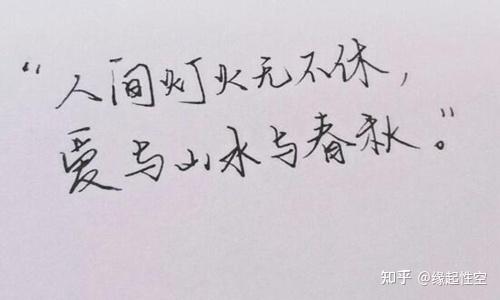 “人间灯火无不休，
爱与山水与春秋。”
知乎 @缘起性空